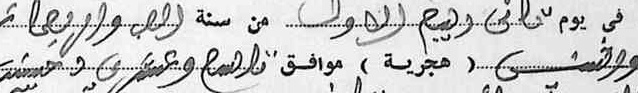 في يوم ثاني ربيع الاول من سنة الف واربعمائة
واثنتى ( هجرية ) موافق تاسع وعشرين دجنبر